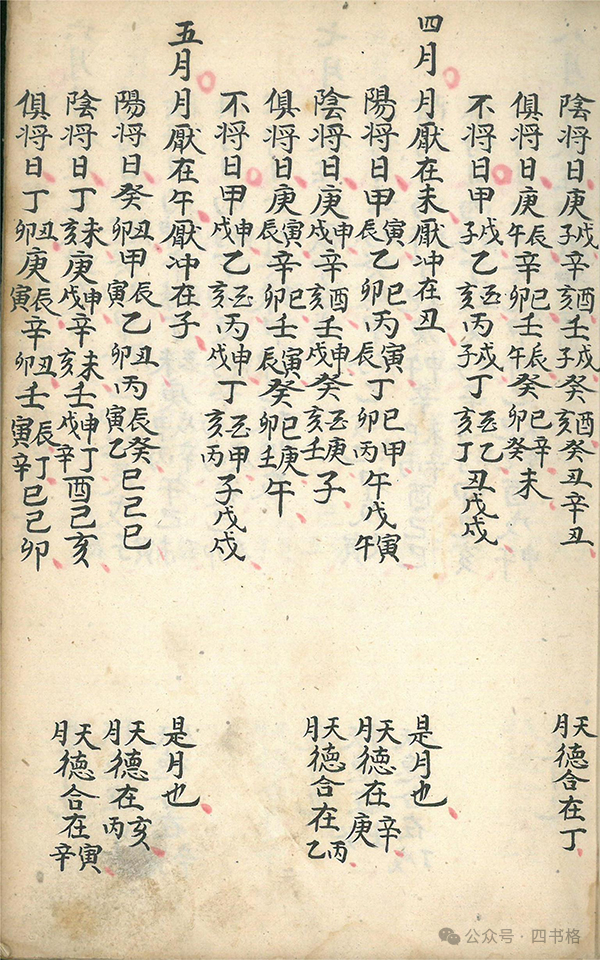 陰将日庚戌子辛酉亥壬戌子癸酉亥癸丑辛丑
天月德合在丁
俱将日庚辰午辛巳卯壬辰午癸巳卯辛癸未
不将日甲戌子乙丑亥丙戌子丁丑亥乙丁丑戊戌
四月月厭在未厭冲在丑
是月也
陽将日甲寅辰乙巳卯丙寅辰丁巳卯甲丙午戊寅午
天月德在辛庚
陰将日庚申戌辛酉亥壬申戌癸丑亥庚壬子
天月德合在丙乙
俱将日庚寅辰辛巳卯壬寅辰癸巳卯庚壬午
不将日甲申戌乙丑亥丙申戌丁丑亥甲丙子戊戌
五月月厭在午厭冲在子
是月也
陽将日癸丑卯甲辰寅乙丑卯丙辰寅癸乙巳己巳
天月德在亥丙
陰将日丁未亥庚申戌辛未亥壬申戌丁辛酉己亥
天月德合在寅辛
俱将日丁丑卯庚辰寅辛丑卯壬辰寅丁辛巳己卯
公众号·四书格